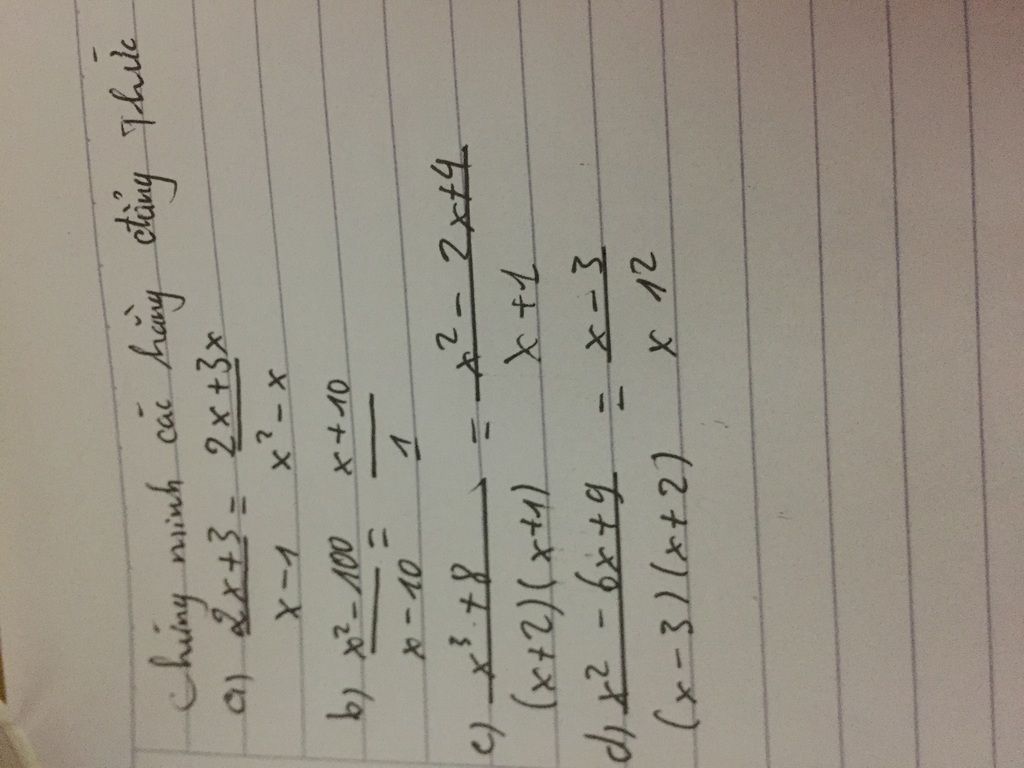 Chứng minh các hằng đẳng thức
a) 2x+3 = 2x+3x
x-1 x²-x
b) x²-100 = x+10
x-10 1
c) x³+8 = x²-2x+4
(x+2)(x+1) x+1
d) x²-6x+9 = x-3
(x-3)(x+2) x 12